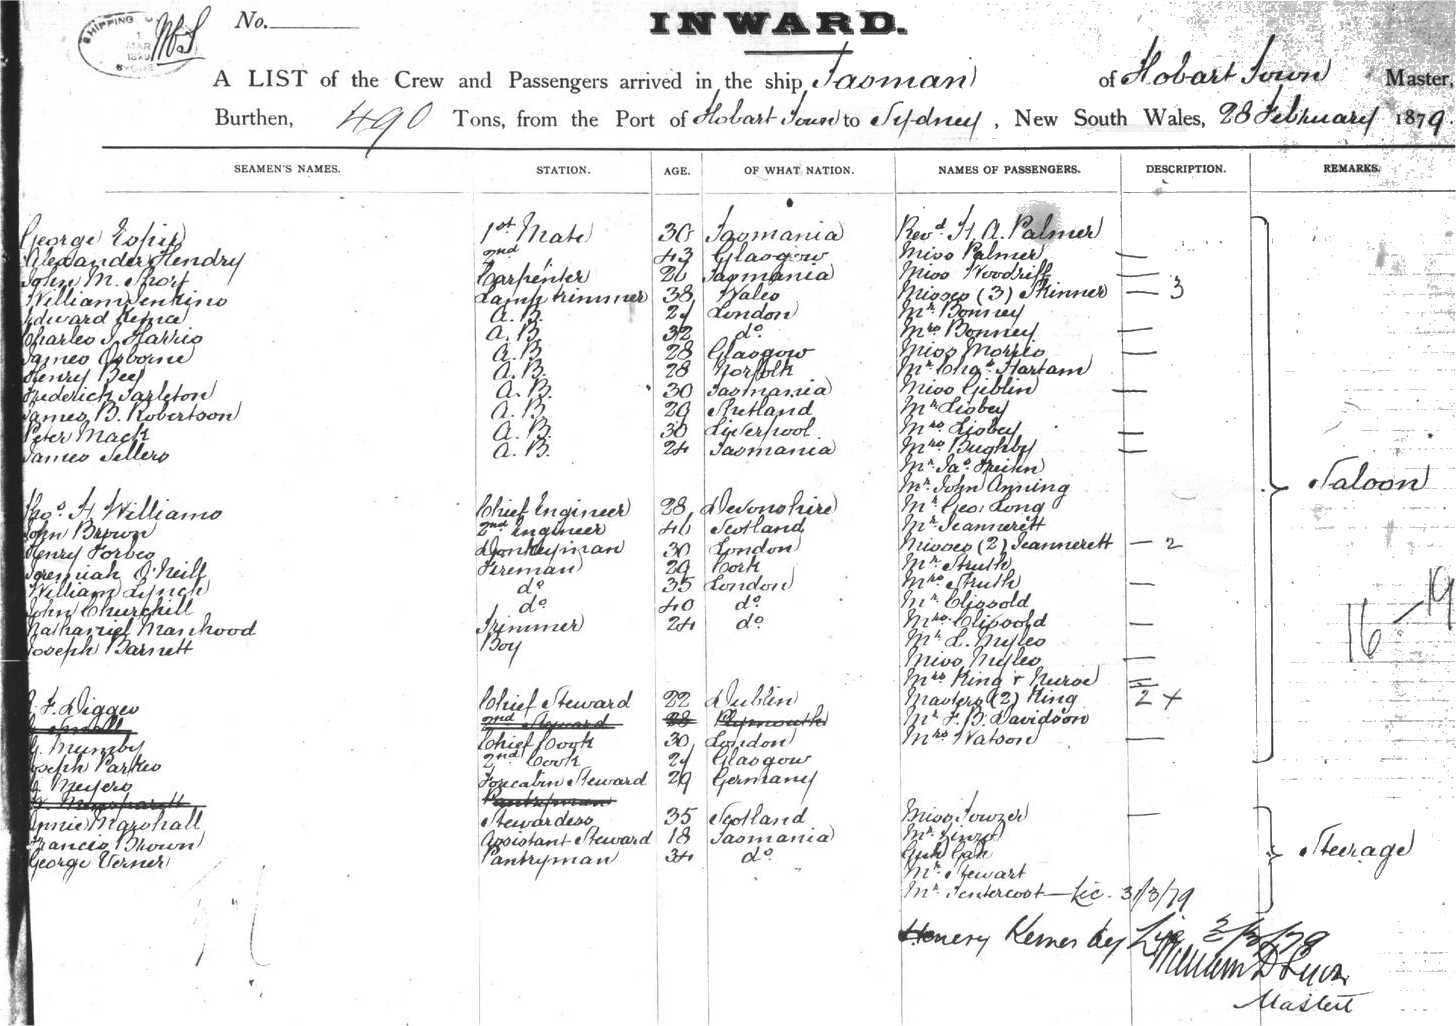 No.
SHIPPING
MAR
INWARD.
A LIST of the Crew and Passengers arrived in the ship Tasman of Hobart Town Master,
Burthen, 490 Tons, from the Port of Hobart Town to Sydney, New South Wales, 28 February 1879.
SEAMEN'S NAMES. STATION. AGE. OF WHAT NATION. NAMES OF PASSENGERS. DESCRIPTION. REMARKS.
George 1st Mate 30 Tasmania Revd. H. A. Palmer
Alexander Hendry 2nd 43 Glasgow Miss Palmer —
John M. Short Carpenter 26 Tasmania Miss Woodriff —
William Jenkins Lamp trimmer 38 Wales Misses (3) Skinner — 3
Edward A.B. London Mr. Bonney
Charles J. Harris A.B. 32 do. Mrs. Bonney —
James Osborne A.B. 28 Glasgow Miss Morris —
Henry Bey A.B. 28 Norfolk Mr. Chas. Hartam
Frederick Tarleton A.B. 30 Tasmania Miss Giblin —
James B. Robertson A.B. 29 Shetland Mr. Lisbey
Peter Mack A.B. 30 Liverpool Mrs. Lisbey —
James Sellers A.B. 24 Tasmania Mrs. Bughby —
Mr. Jas.
Mr. John Anning
Saloon
Thos. H. Williams Chief Engineer 28 Devonshire Mr. Geo. Long
John Brown 2nd Engineer 40 Scotland Mr. Jeannerett
Henry Forbes Donkeyman 30 London Misses (2) Jeannerett — 2
Jeremiah O'Neill Fireman 29 Cork Mr. Struth
William Lynch do. 35 London Mrs. Struth —
John Churchill do. 40 do. Mr. Clissold
Nathaniel Manhood Trimmer 24 do. Mrs. Clissold —
Joseph Barnett Boy Mr. L. Myles
16 — 19
Miss Myles —
Mrs. King & Nurse =
F. Digges Chief Steward 22 Dublin Masters (2) King 2 +
Small 2nd Steward 28 Plymouth Mr. F. B. Davidson
G. Mumby Chief Cook 30 London Mrs. Watson —
Joseph Parkes 2nd Cook Glasgow
Meyers Forecabin Steward 29 Germany
Pantryman
Annie Marshall Stewardess 35 Scotland Miss Towzer —
Francis Brown Assistant Steward 18 Tasmania Mr.
George Verner Pantryman 34 do. Steerage
Mr. Stewart
Mr. Tentercost — Lic. 31/3/79
Henery
William D Lyon
Master